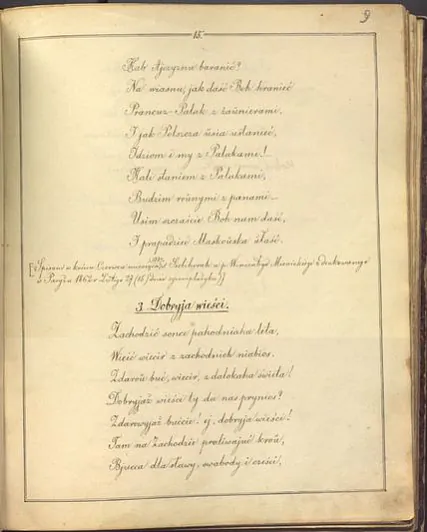 9
15.
Kab Ajczyznu baranić?
Na wiasnu, jak daść Boh
Francuz-Palak z żaŭnierami,
I jak Polszcza ŭsia ustanieć,
Idziom i my z Palakami!..
Kali staniem z Palakami,
Budziem roŭnymi z panami...
Usim szczaście Boh nam daść,
I prapadzie Maskoŭska ŭłaść.
w końcu Czerwca w p.
w Paryżu 1862 r. Lutego 27 (15)
3. Dobryja wieści.
Zachodzić sonce pahodniaha leta,
Wieić wiecier z zachodnich niabios.
Zdaroŭ buć, wiecier, z dalokaha świeta!
Dobryjaż wieści ty da nas prynios?
Zdarowyjaż buićcie! ej, dobryja wieści!
Tam na Zachodzie praliwajuć kroŭ,
Bjucca dla sławy, swabody i cześci,